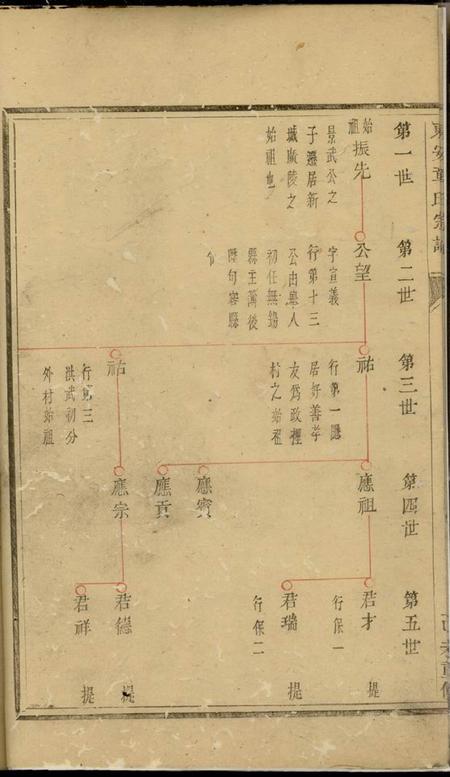 東安童氏宗譜
第一世
第二世
第三世
第四世
第五世
始祖
振先
景武公之
子遷居新
城廣陵之
始祖也
公望
字宣義
行第十三
公由舉人
初任無錫
縣主簿後
陞句容縣
令
祐
行第一隱
居好善孝
友為政裡
村之始祖
祐
行第三
洪武初分
外村始祖
應祖
應實
應貢
應宗
君才
行保一
提
君瑞
行保二
提
君德
提
君祥
提